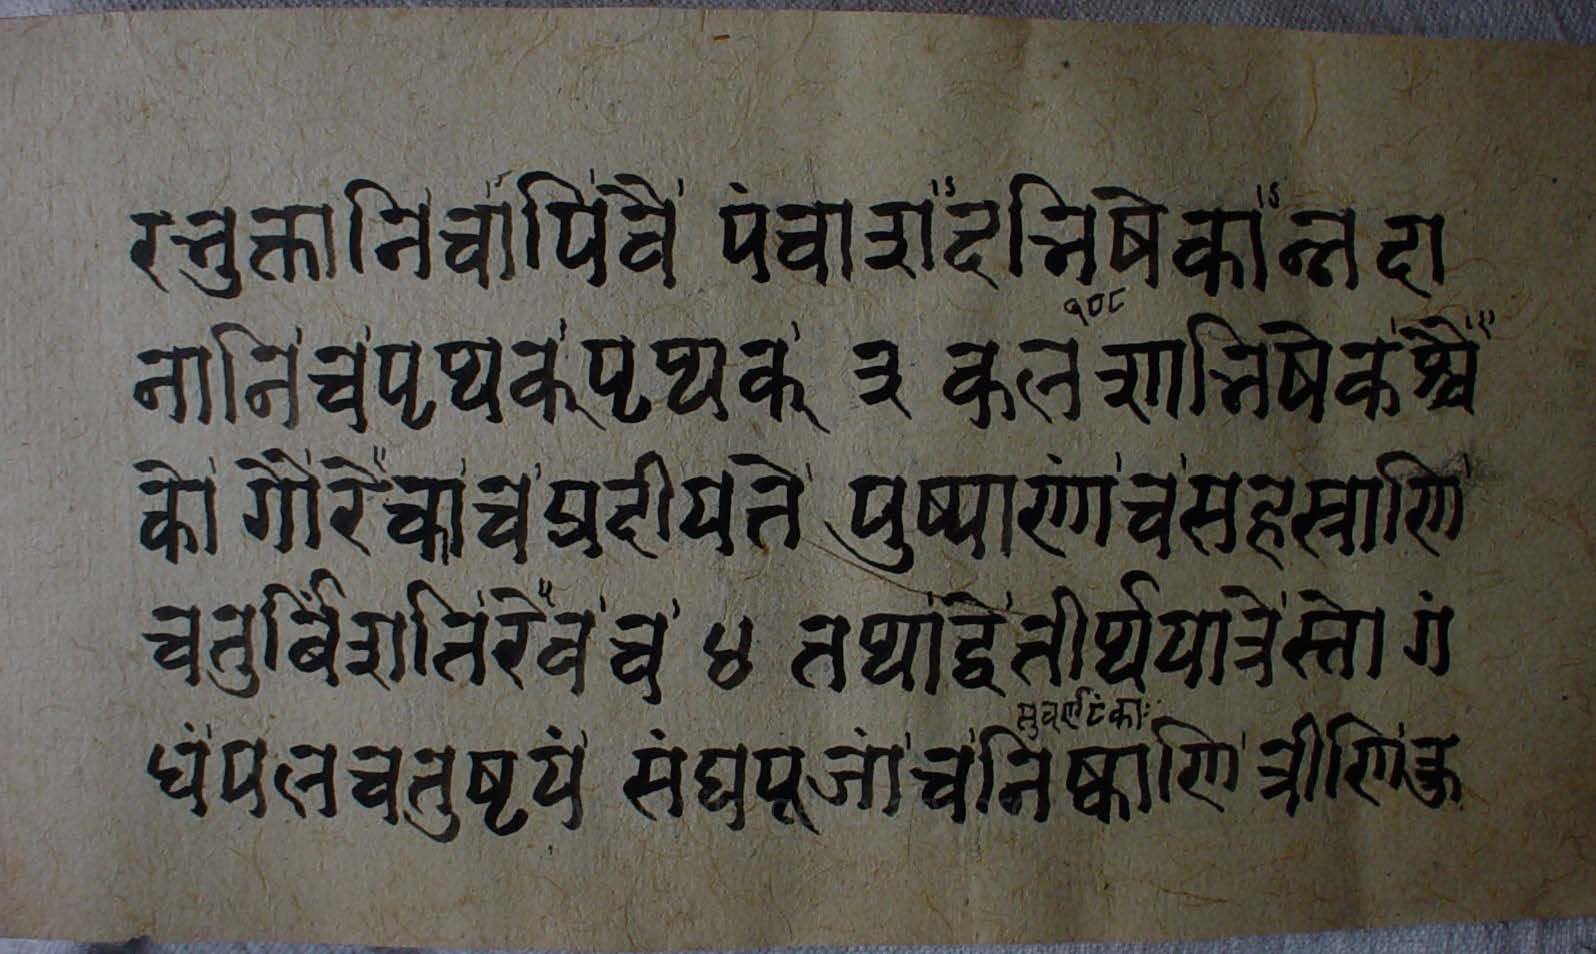 रभुक्तानिचापिवै पंचाशदभिषेकान्नदा
१०८
नानिचपृथक्पृथक् ३ कलशाभिषेकश्चै
कोगौरेकाचप्रदीयते पुष्पाणांचसहस्राणि
चतुर्विंशतिरेवच ४ तथाद्वेतीर्थयात्रेस्तोगं
सुवर्णटंकाः
धंपलचतुष्टयं संघपूजाचनिष्काणि त्रीणिकु